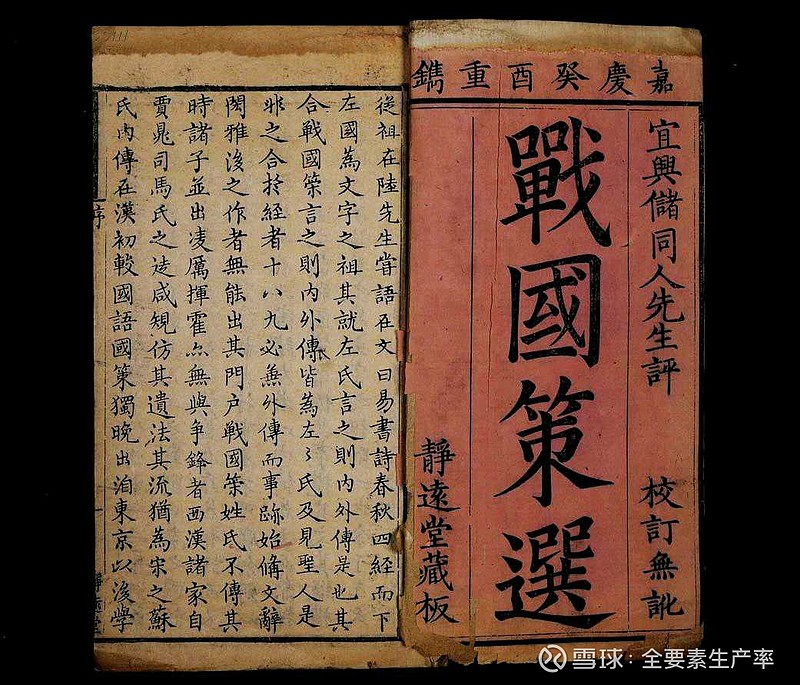 嘉慶癸酉重鐫
宜興儲同人先生評 校訂無訛
戰國策選
靜遠堂藏板
從祖在陸先生嘗語在文曰易書詩春秋四經而下
左國為文字之祖其就左氏言之則内外傳是也其
合戰國策言之則内外傳皆為左〻氏及見聖人是
非之合於經者十八九必無外傳而事跡始備文辭
閎雅後之作者無能出其門户戰國策姓氏不傳其
時諸子並出凌厲揮霍亦無與争鋒者西漢諸家自
賈晁司馬氏之徒咸規仿其遺法其流猶為宋之蘇
氏内傳在漢初較國語國策獨晚出洎東京以後學
序
雪球：全要素生产率